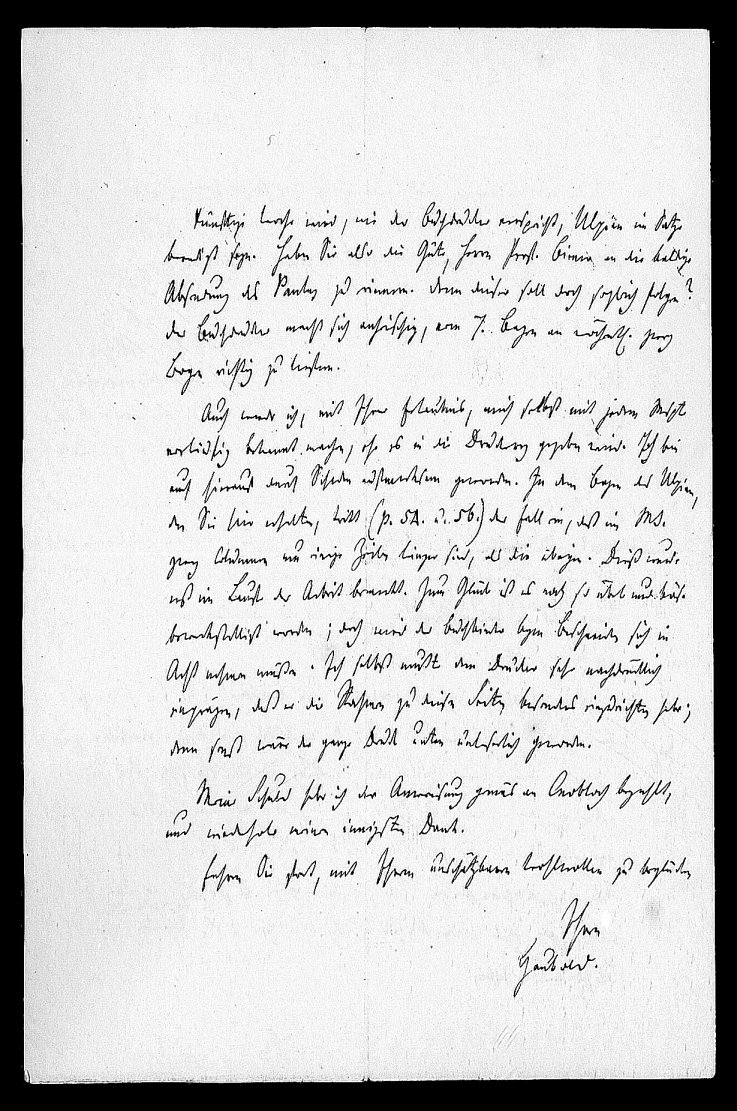 Künftige Woche wird, wie der Buchdrucker verspricht, Ulpian im Satze
beendigt seyn. Haben Sie also die Güte, Herrn Prof. Biener an die baldige
Absendung des Paulus zu erinnern. Denn dieser soll doch sogleich folgen?
Der Buchdrucker macht sich anheischig, vom 7. Bogen an wöchentl. zwey
Bogen richtig zu liefern.
Auch werde ich, mit Ihrer Erlaubnis, mich selbst mit jedem Mscpt
vorläufig bekannt machen, ehe es in die Druckerey gegeben wird. Ich bin
auf hierauf durch Schaden aufmerksam geworden. In dem Bogen des Ulpian,
den Sie hier erhalten, tritt (p. 54. u. 56.) der Fall ein, daß im MS.
zwey Columnen um einige Zeilen länger sind, als die übrigen. Dieß wurde
erst im Laufe der Arbeit bemerkt. Zum Glück ist es noch so übel und böse
bewerkstelligt worden; doch wird der Buchbinder beym Beschneiden sich in
Acht nehmen müssen. Ich selbst mußte dem Drucker sehr nachdrücklich
einprägen, daß er die Rahmen zu diesen Seiten besonders einzurichten habe;
denn sonst wäre der ganze Druck unten unleserlich geworden.
Meine Schuld habe ich der Anweisung gemäs an Cnobloch bezahlt,
und wiederhole meinen innigsten Dank.
Fahren Sie fort, mit Ihrem unschätzbaren Wohlwollen zu beglücken
Ihren
Haubold.